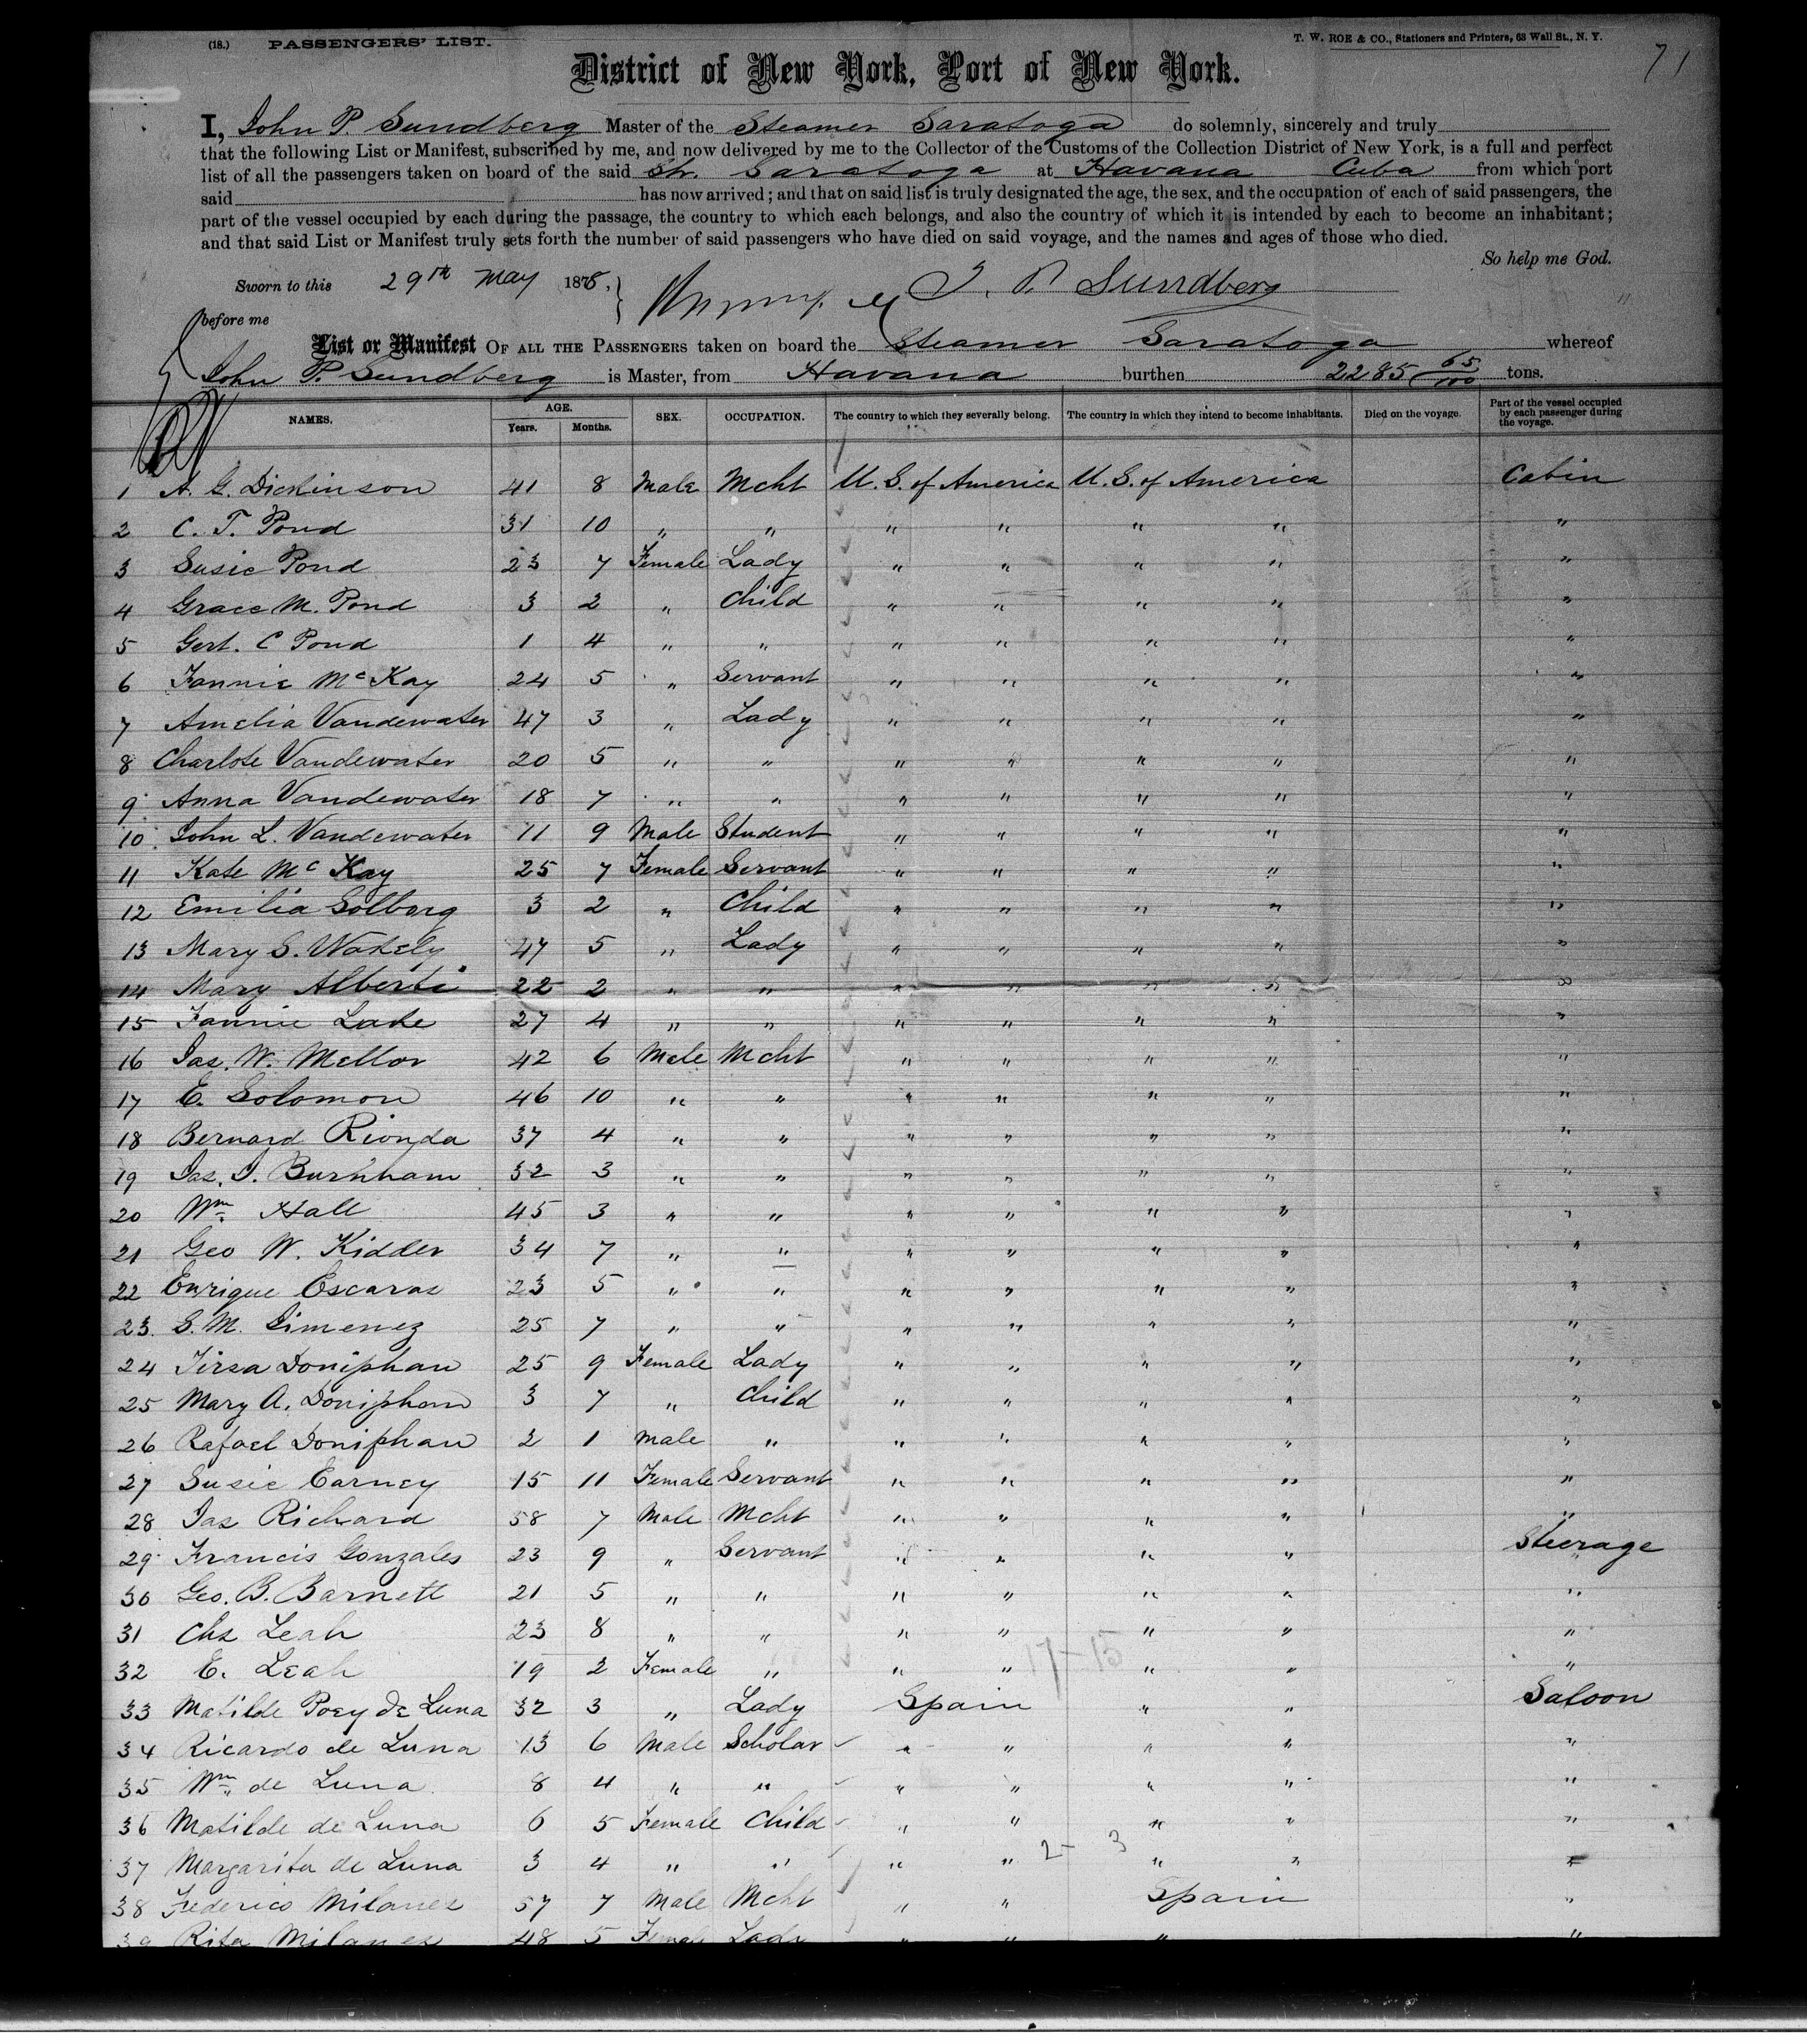 (18.) PASSENGERS' LIST.
T. W. ROE & CO., Stationers and Printers, 63 Wall St., N. Y.
71
District of New York, Port of New York.
I, John P Sundberg Master of the Steamer Saratoga do solemnly, sincerely and truly
that the following List or Manifest, subscribed by me, and now delivered by me to the Collector of the Customs of the Collection District of New York, is a full and perfect
list of all the passengers taken on board of the said Str. Saratoga at Havana Cuba from which port
said has now arrived; and that on said list is truly designated the age, the sex, and the occupation of each of said passengers, the
part of the vessel occupied by each during the passage, the country to which each belongs, and also the country of which it is intended by each to become an inhabitant;
and that said List or Manifest truly sets forth the number of said passengers who have died on said voyage, and the names and ages of those who died.
So help me God.
Sworn to this 29th May 187
J. P. Sundberg
before me
List or Manifest OF ALL THE PASSENGERS taken on board the Steamer Saratoga whereof
John P. Sundberg is Master, from Havana burthen 2285 65/100 tons.
NAMES. AGE. Years. Months. SEX. OCCUPATION. The country to which they severally belong. The country in which they intend to become inhabitants. Died on the voyage. Part of the vessel occupied by each passenger during the voyage.
1 A. G. Dickinson 41 8 Male Mcht U. S. of America U. S. of America Cabin
2 C. T. Pond 31 10 " " " " " " "
3 Susie Pond 23 7 Female Lady " " " " "
4 Grace M. Pond 3 2 " Child " " " " "
5 Gert. C Pond 1 4 " " " " " " "
6 Fannie McKay 24 5 " Servant " " " " "
7 Amelia Vandewater 47 3 " Lady " " " " "
8 Charlote Vandewater 20 5 " " " " " " "
9 Anna Vandewater 18 7 " " " " " " "
10 John L. Vandewater 11 9 Male Student " " " " "
11 Kate Mc Kay 25 7 Female Servant " " " " "
12 Emilia Solberg 3 2 " Child " " " " "
13 Mary S. Wakely 47 5 " Lady " " " " "
14 Mary Alberti 22 2 " " " " " " "
15 Fannie Lake 27 4 " " " " " " "
16 Jas. W. Mellor 42 6 Male Mcht " " " " "
17 E. Solomon 46 10 " " " " " " "
18 Bernard Rionda 37 4 " " " " " " "
19 Jas. J. Burnham 32 3 " " " " " " "
20 Wm Hall 45 3 " " " " " " "
21 Geo W. Kidder 34 7 " " " " " " "
22 Enrique Escaras 23 5 " " " " " " "
23. S. M. Jimenez 25 7 " " " " " " "
24 Tirsa Doniphan 25 9 Female Lady " " " " "
25 Mary A. Doniphan 3 7 " Child " " " " "
26 Rafael Doniphan 2 1 Male " " " " " "
27 Susie Earney 15 11 Female Servant " " " " "
28 Jas Richard 58 7 Male Mcht " " " " "
29 Francis Gonzales 23 9 " Servant " " " " Steerage
30 Geo. B. Barnett 21 5 " " " " " " "
31 Chs Leah 23 8 " " " " " " "
32 E. Leah 19 2 Female " " " " " "
17-15
33 Matilde Poey de Luna 32 3 " Lady Spain " " Saloon
34 Ricardo de Luna 13 6 Male Scholar " " " " "
35 Wm de Luna 8 4 " " " " " " "
36 Matilde de Luna 6 5 Female Child " " " " "
2- 3
37 Margarita de Luna 3 4 " " " " " " "
38 Federico Milanes 57 7 Male Mcht " " Spain "
39 Rita Milanes 48 5 Female Lady " " " "